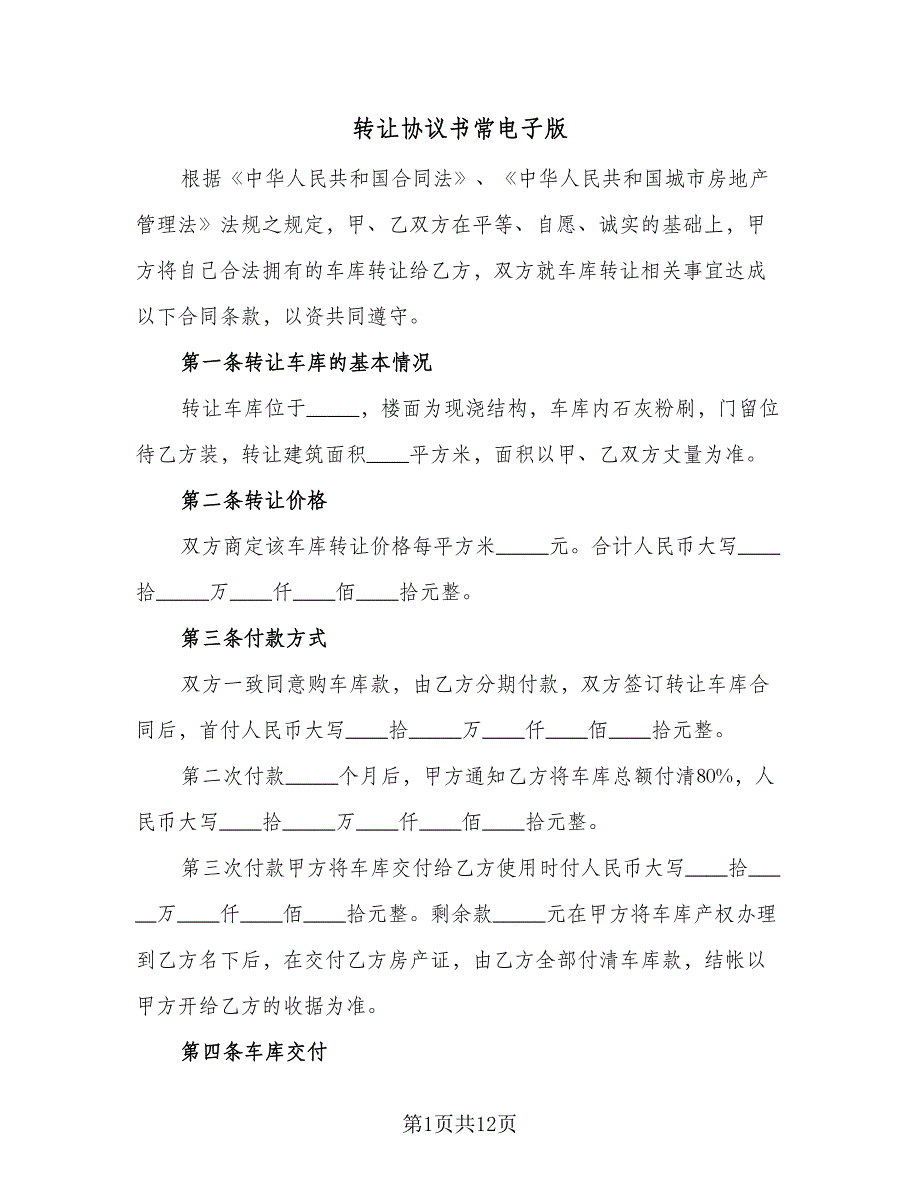 转让协议书常电子版
根据《中华人民共和国合同法》、《中华人民共和国城市房地产
管理法》法规之规定，甲、乙双方在平等、自愿、诚实的基础上，甲
方将自己合法拥有的车库转让给乙方，双方就车库转让相关事宜达成
以下合同条款，以资共同遵守。
第一条转让车库的基本情况
转让车库位于_____，楼面为现浇结构，车库内石灰粉刷，门留位
待乙方装，转让建筑面积____平方米，面积以甲、乙双方丈量为准。
第二条转让价格
双方商定该车库转让价格每平方米_____元。合计人民币大写____
拾_____万____仟____佰____拾元整。
第三条付款方式
双方一致同意购车库款，由乙方分期付款，双方签订转让车库合
同后，首付人民币大写____拾_____万____仟____佰____拾元整。
第二次付款_____个月后，甲方通知乙方将车库总额付清80%，人
民币大写____拾_____万____仟____佰____拾元整。
第三次付款甲方将车库交付给乙方使用时付人民币大写____拾___
__万____仟____佰____拾元整。剩余款_____元在甲方将车库产权办理
到乙方名下后，在交付乙方房产证，由乙方全部付清车库款，结帐以
甲方开给乙方的收据为准。
第四条车库交付
第1页共12页